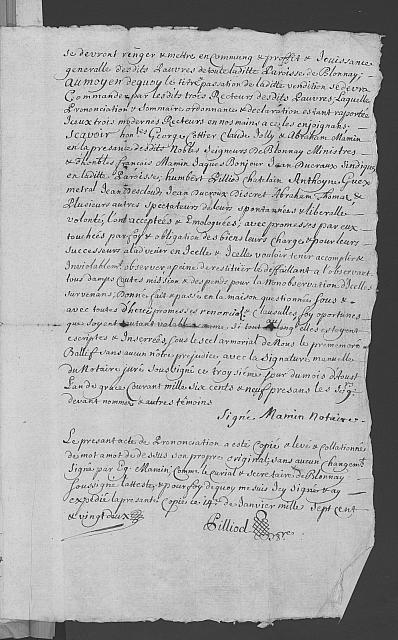 se devront renger & mettre en Commung & proffit & Jouissance
generalle desdits Pauvres de toute laditte Parroisse de Blonnay,
Au moyen dequoy le retirage de laditte vendition se devra
Commander par lesdits très Recteurs desdits Pauvres, Laquelle
Prononciation & Sommaire ordonnance & declaration estant rapportée
Jceux trois modernes Recteurs en nos mains a ce les enjoignans
Scavoir honles George Cottier Claude Jolly & Abraham Mamin
en la presance desdits Nobles Seigneurs de Blonnay Ministres
& Honbles françois Mamin Jaques Bonjour Jean Ducraux Sindiques
en laditte Paroisse; humbert Pilliod Chatelain Anthoyne Guex
metral Jean Descloud Jean Ducroux Discret Abraham &
Plusieurs autres Spectateurs de leurs spontannées & liberalle
volonté, l'ont acceptées & Emologuées, avec promesses par eux
touchées par foy & obligation des biens leurs charge & pour leurs
Successeurs aladvenir en Jcelle & Jcelle vouloir tenir accomplir &
Inviolablemt observer a peine de restituer le deffaillant a l'observant
tous damps couts mission & despends pour la Non observation d'Jcelles
survenans, Donné fait & passé en la maison questionnée sous &
avec toutes d'heües promesses renonciaôns & clausulles foy oportunes
que soyent autant valable comme si tout au long elles estoyent
escriptes & Inserées, sous le scel armorial de Nous le prememoré
Ballif sans aucun notre prejudice, avec la Signature manuelle
du Notaire juré Soussigné ce troysieme jour du mois d'Aoust
Lan de grace Courant mille six cents & neuf presans les sigrs
devant nommés & autres témoins
Signé Mamin Notaire.
Le presant acte de Prononciation a esté Copié & levé & Collationné
de mot a mot de dessus son propre original, sans aucun changemt
Signé par Eg. Mamin, Comme Curial & Secretaire de Blonnay
Soussigné l'atteste, & pour foy dequoy me suis Jcy Signé & ay
expedié la presante Copie ce 14e de Janvier mille Sept Cent
& vingt deux
Pilliod